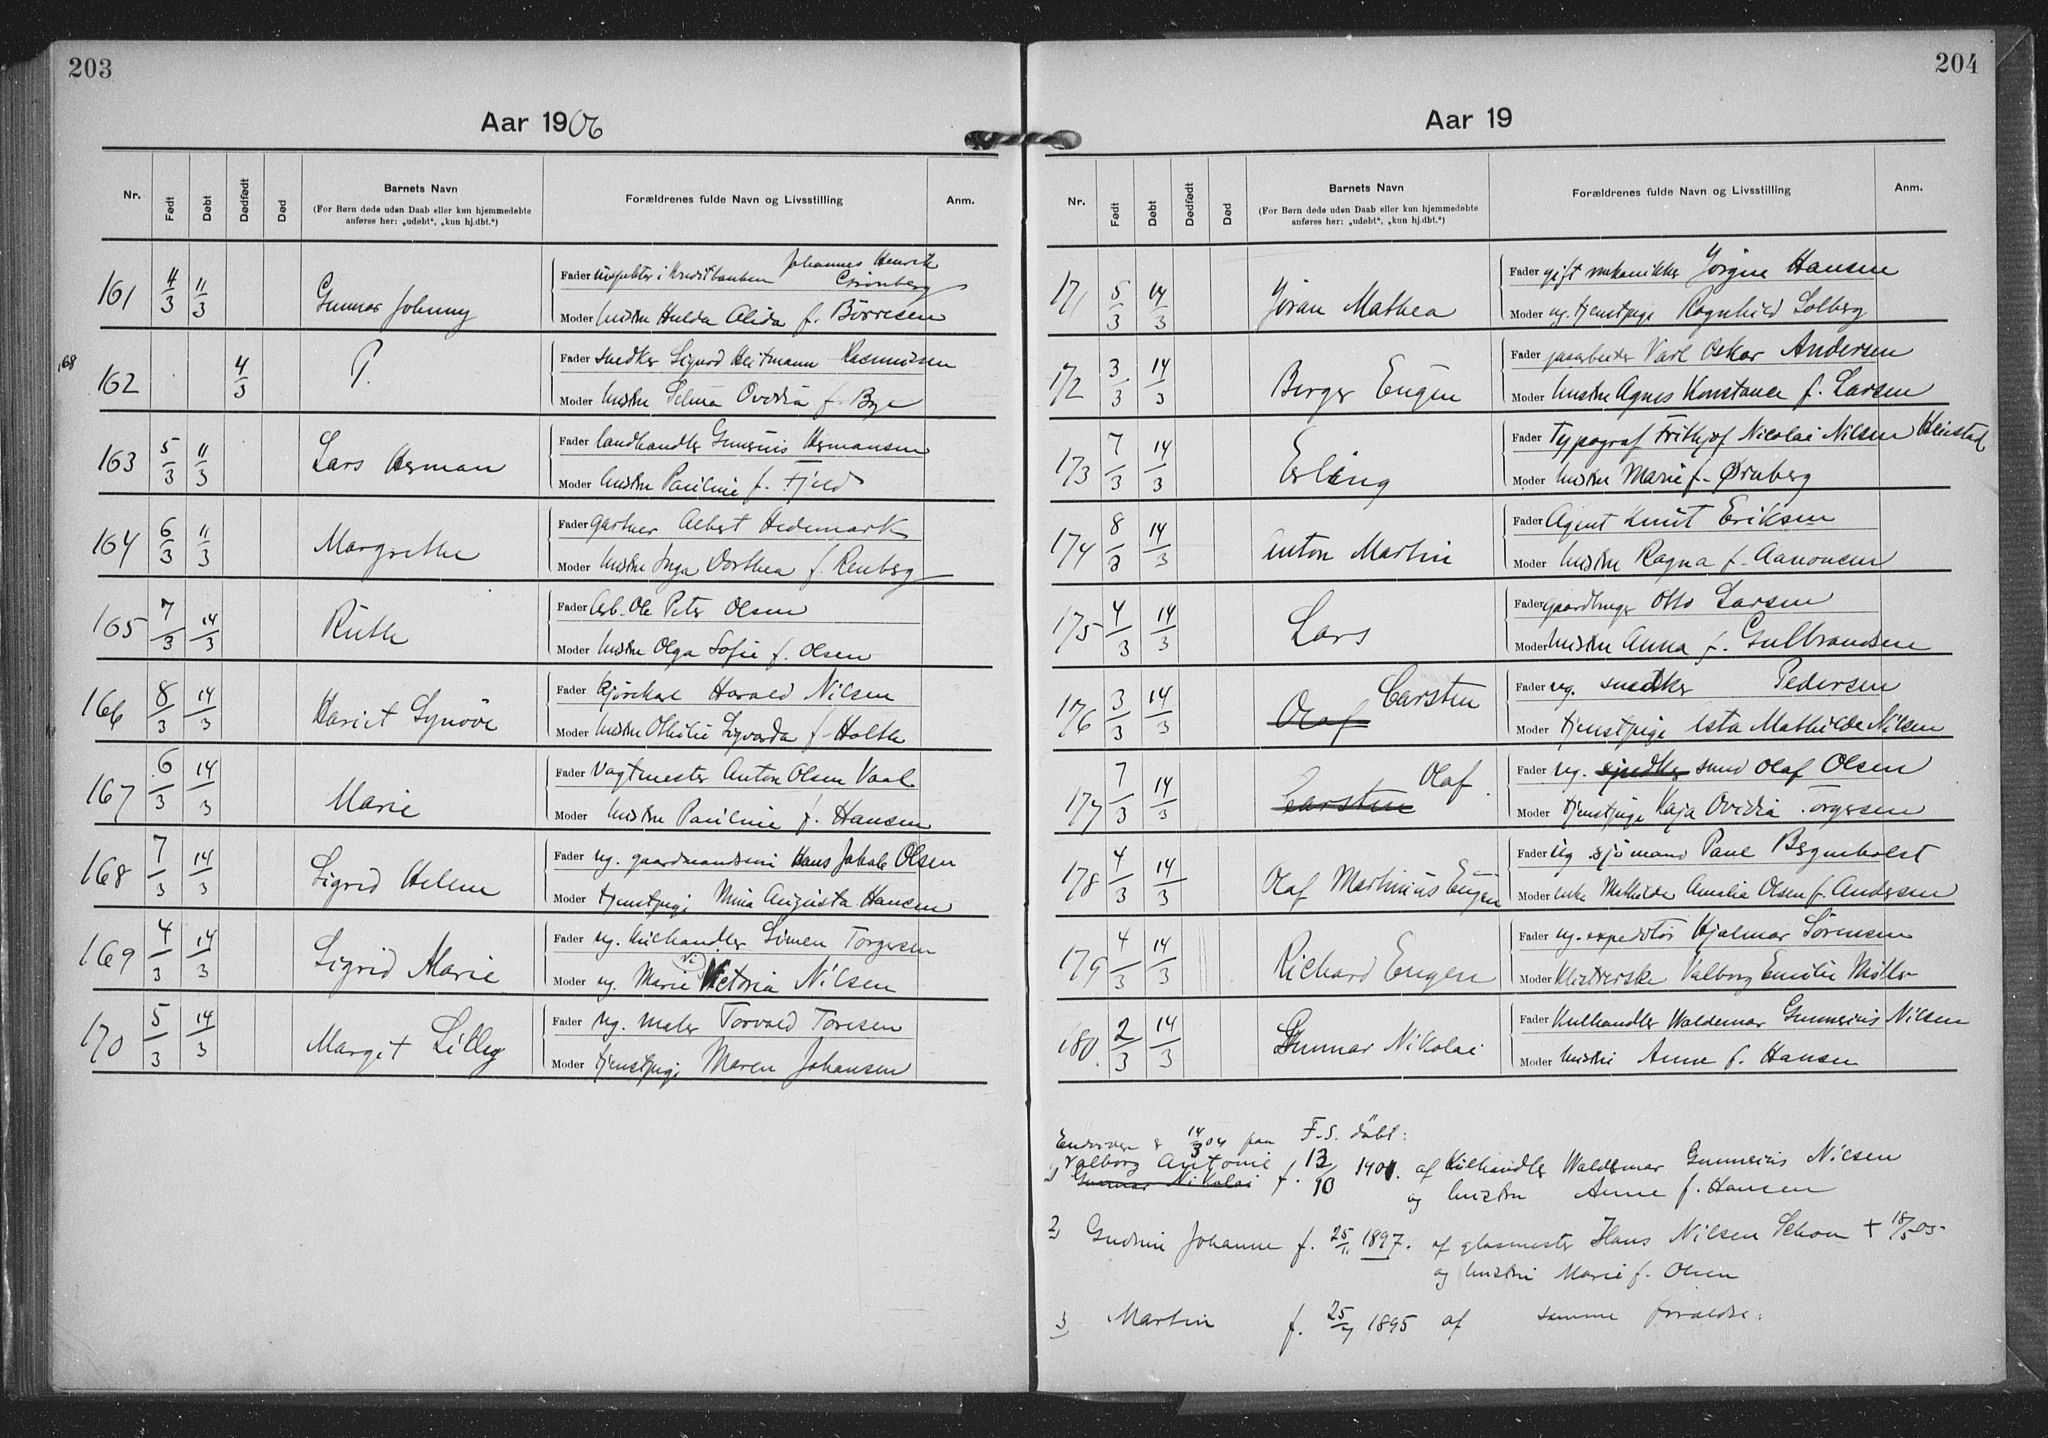 203
Aar 1906
Nr. Født Døbt Dødfødt Død Barnets Navn Forældrenes fulde Navn og Livsstilling Anm.
(For Børn døde uden Daab eller kun hjemmedøbte
anføres her: „udøbt“, „kun hj.dbt.“)
Johannes Henrik
161 4/3 11/3 Gunnar Johnny Fader inspektør i Kreditbanken
Moder hustru Hulda Alida f. Børresen
162 4/3 P. Fader snedker Sigurd Heitmann Rasmussen
68
Moder hustru Selma Ovidia f. Bye
163 5/3 11/3 Lars Herman Fader landhandler Gunerius Hermansen
Moder hustru Pauline f. Fjeld
164 6/3 11/3 Margrethe Fader gartner Albert Hedemark
Moder hustru Inga Dorthea f. Renberg
165 7/3 14/3 Ruth Fader Arb. Ole Peter Olsen
Moder hustru Olga Sofie f. Olsen
166 8/3 14/3 Hariet Synöve Fader Kjørekar Harald Nilsen
Moder hustru Othilie Sigvarda f. Holth
167 6/3 14/3 Marie Fader Vagtmester Anton Olsen Vaal
Moder hustru Pauline f. Hansen
168 7/3 14/3 Sigrid Helene Fader ug. gaardmandssøn Hans Jakob Olsen
Moder tjenstpige Mina Augusta Hansen
169 4/3 14/3 Sigrid Marie Fader ug. Kulhandler Simen Torgersen
Vi
Moder ug. Marie Victoria Nilsen
170 5/3 14/3 Margit Lilly Fader ug. maler Torvald Toresen
Moder tjenstpige Maren Johansen
204
Aar 19
Nr. Født Døbt Dødfødt Død Barnets Navn Forældrenes fulde Navn og Livsstilling Anm.
(For Børn døde uden Daab eller kun hjemmedøbte
anføres her: „udøbt“, „kun hj.dbt.“)
171 5/3 14/3 Jöran Mathea Fader gift mekanikker Jörgen Hansen
Moder ug. tjenstpige Ragnhild Solberg
172 3/3 14/3 Berger Eugen Fader gasarbeider Karl Oskar Andersen
Moder hustru Agnes Konstance f. Larsen
173 7/3 14/3 Erling Fader Typograf Frithjof Nicolai Nilsen Heiestad
Moder hustru Marie f. Ørnberg
174 8/3 14/3 Anton Martin Fader Agent Knut Eriksen
Moder hustru Ragna f. Aanonsen
175 4/3 14/3 Lars Fader gaardbruger Otto Larsen
Moder hustru Anna f. Gulbrandsen
176 3/3 14/3 Olaf Carsten Fader ug. snedker Pedersen
Moder tjenstpige Asta Mathilde Nilsen
177 7/3 14/3 Carsten Olaf Fader ug. snedker smed Olaf Olsen
Moder tjenstpige Kaja Ovidia Torgersen
178 4/3 14/3 Olaf Martinius Eugen Fader ug sjömand Paul Bermholst
Moder enke Mathilde Amalia Olsen f. Andersen
179 4/3 14/3 Richard Eugen Fader ug. expeditör Hjalmar Sörensen
Moder Klisterske Valborg Emilie Møller
180. 2/3 14/3 Gunnar Nikolai Fader Kulhandler Waldemar Gunnerius Nilsen
Moder hustru Anne f. Hansen
Endvidere er 14/3 04 paa F.S. döbt:
1) Valborg Antonie f. 13/10 1901. af Kulhandler Waldemar Gunnerius Nilsen
Gunnar Nikolai
og hustru Anne f. Hansen
2) Gudrun Johanne f. 25/11 1897. af glasmester Hans Nilsen Schou + 18/5 05
og hustru Marie f. Olsen
3) Martin f. 25/4 1895 af samme forældre: